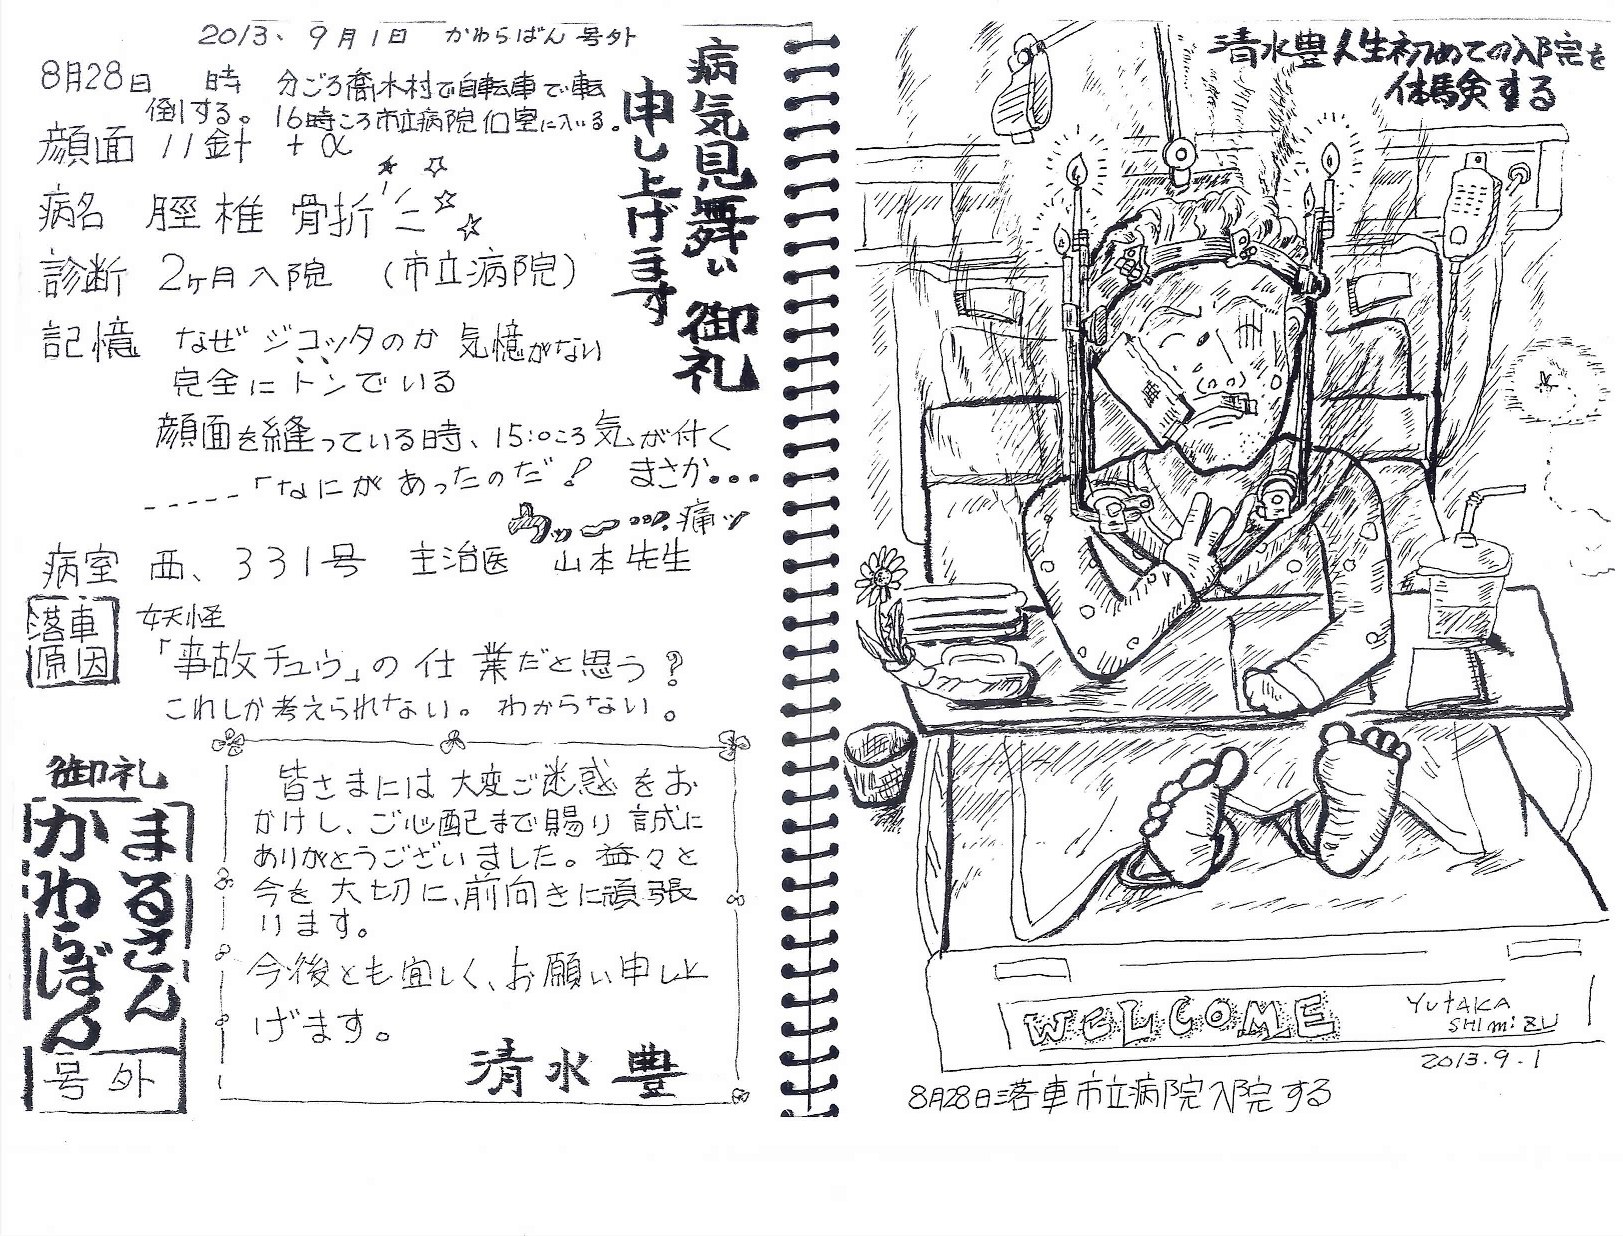 2013、9月1日 かわらばん 号外
病気見舞い 御礼
申し上げます
8月28日 時 分ごろ喬木村で自転車で転
倒する。 16時ころ市立病院個室に入いる。
顔面 11針 +α
病名 脛椎 骨折
診断 2ヶ月入院 (市立病院)
記憶 なぜ ジコッタのか 気憶がない
完全に トンでいる
顔面を縫っている時、15:00ころ気が付く
-----「なにが あったのだ! まさか...
ウッ 痛ッ
病室 西、331号 主治医 山本先生
落車
原因
妖怪
「事故チュウ」の仕業だと思う?
これしか考えられない。わからない。
御礼
まるさん
かわらばん
号外
皆さまには大変ご迷惑をお
かけし、ご心配まで賜り 誠に
ありがとうございました。益々と
今を大切に、前向きに頑張
ります。
今後とも宜しく、お願い申し上
げます。
清水 豊
清水豊人生初めての入院を
体験する
WELCOME
YUTAKA
SHIMIZU
2013.9.1
8月28日落車市立病院入院する